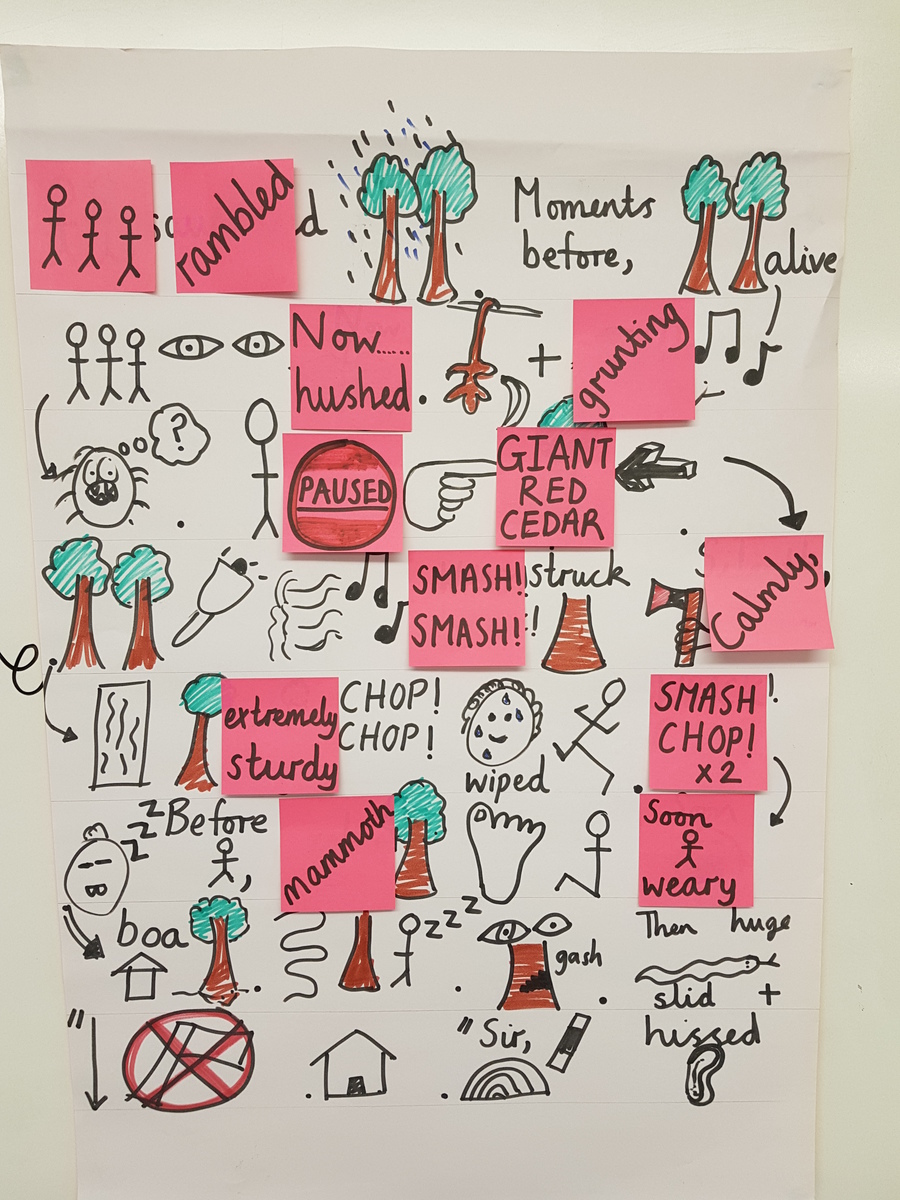 rambled d
Moments
before,
alive
Now......
hushed.
+ grunting
?
PAUSED
GIANT
RED
CEDAR
SMASH!
SMASH! !
struck
Calmly,
extremely
sturdy
CHOP!
CHOP!
wiped
SMASH !
CHOP!
x2
zzz
Before
,
mammoth
Soon
weary
boa
zzz
gash
Then huge
slid +
hissed
"
"Sir,